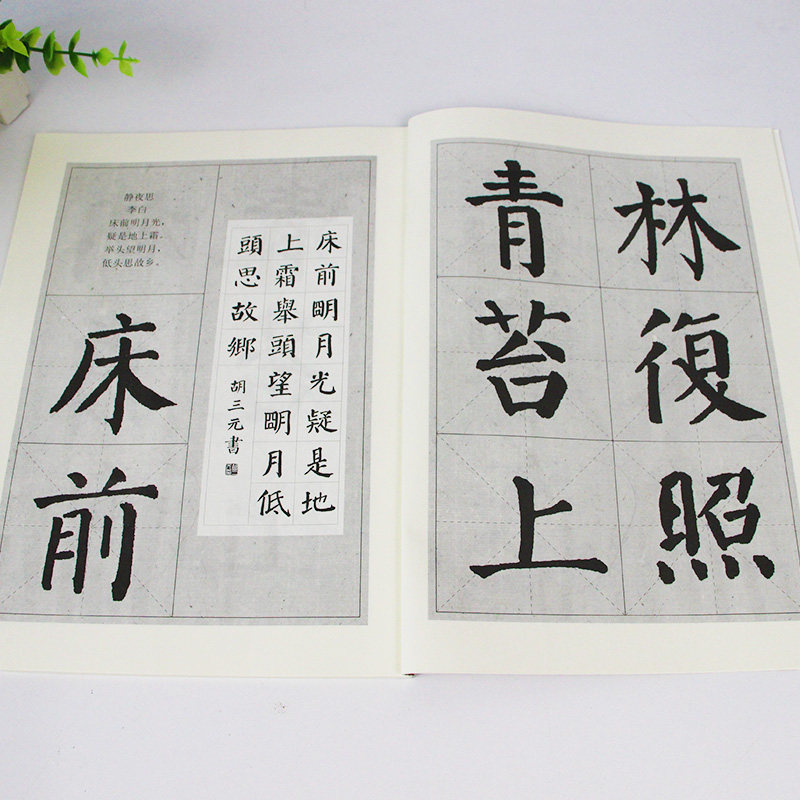 林復照
青苔上
静夜思
李白
床前明月光，
疑是地上霜。
举头望明月，
低头思故乡。
床前朙月光疑是地
上霜舉頭望朙月低
頭思故鄉
胡三元書
床前